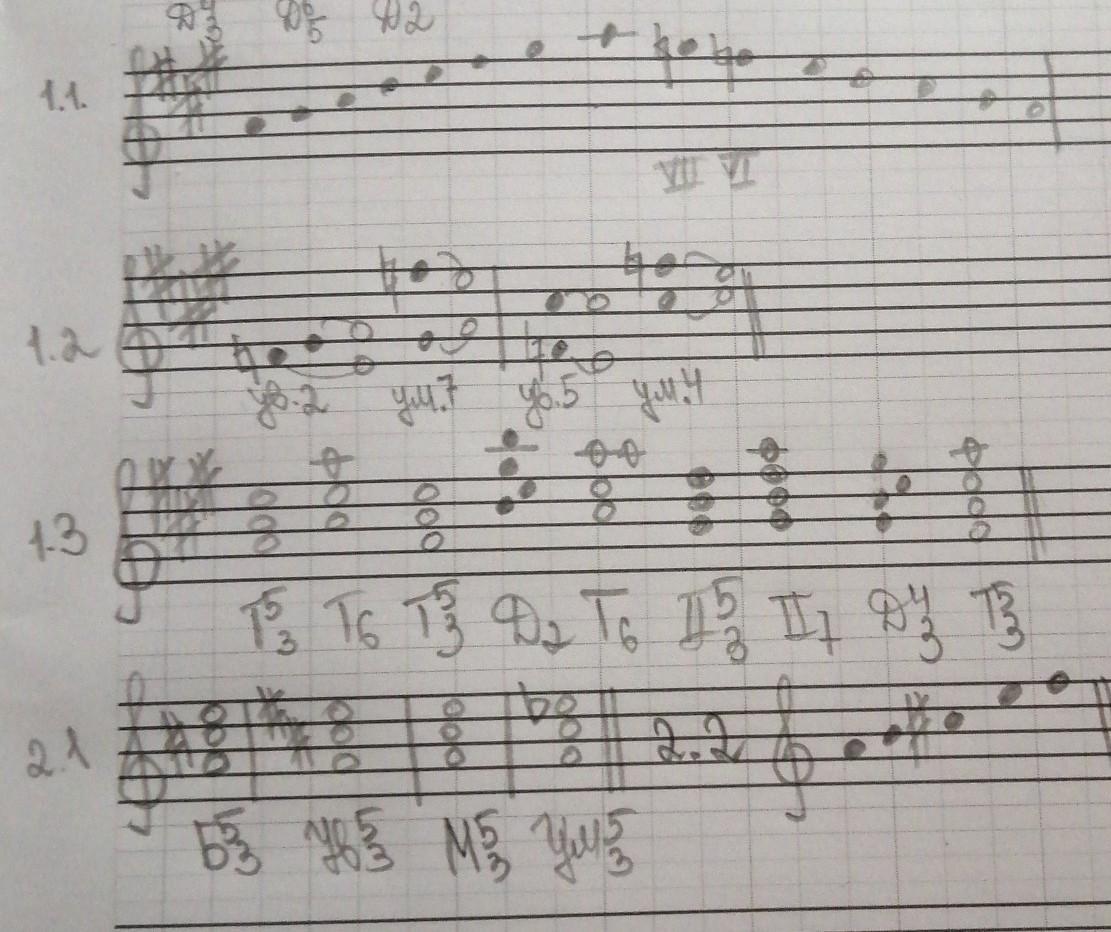 Д4/3 Д6/5 Д2
1.1.
VII VI
1.2
ув.2 ум.7 ув.5 ум.4
1.3
Т5/3 Т6 Т5/3 Д2 Т6 II5/3 II7 Д4/3 Т5/3
2.1 2.2
Б5/3 Ув5/3 М5/3 Ум5/3